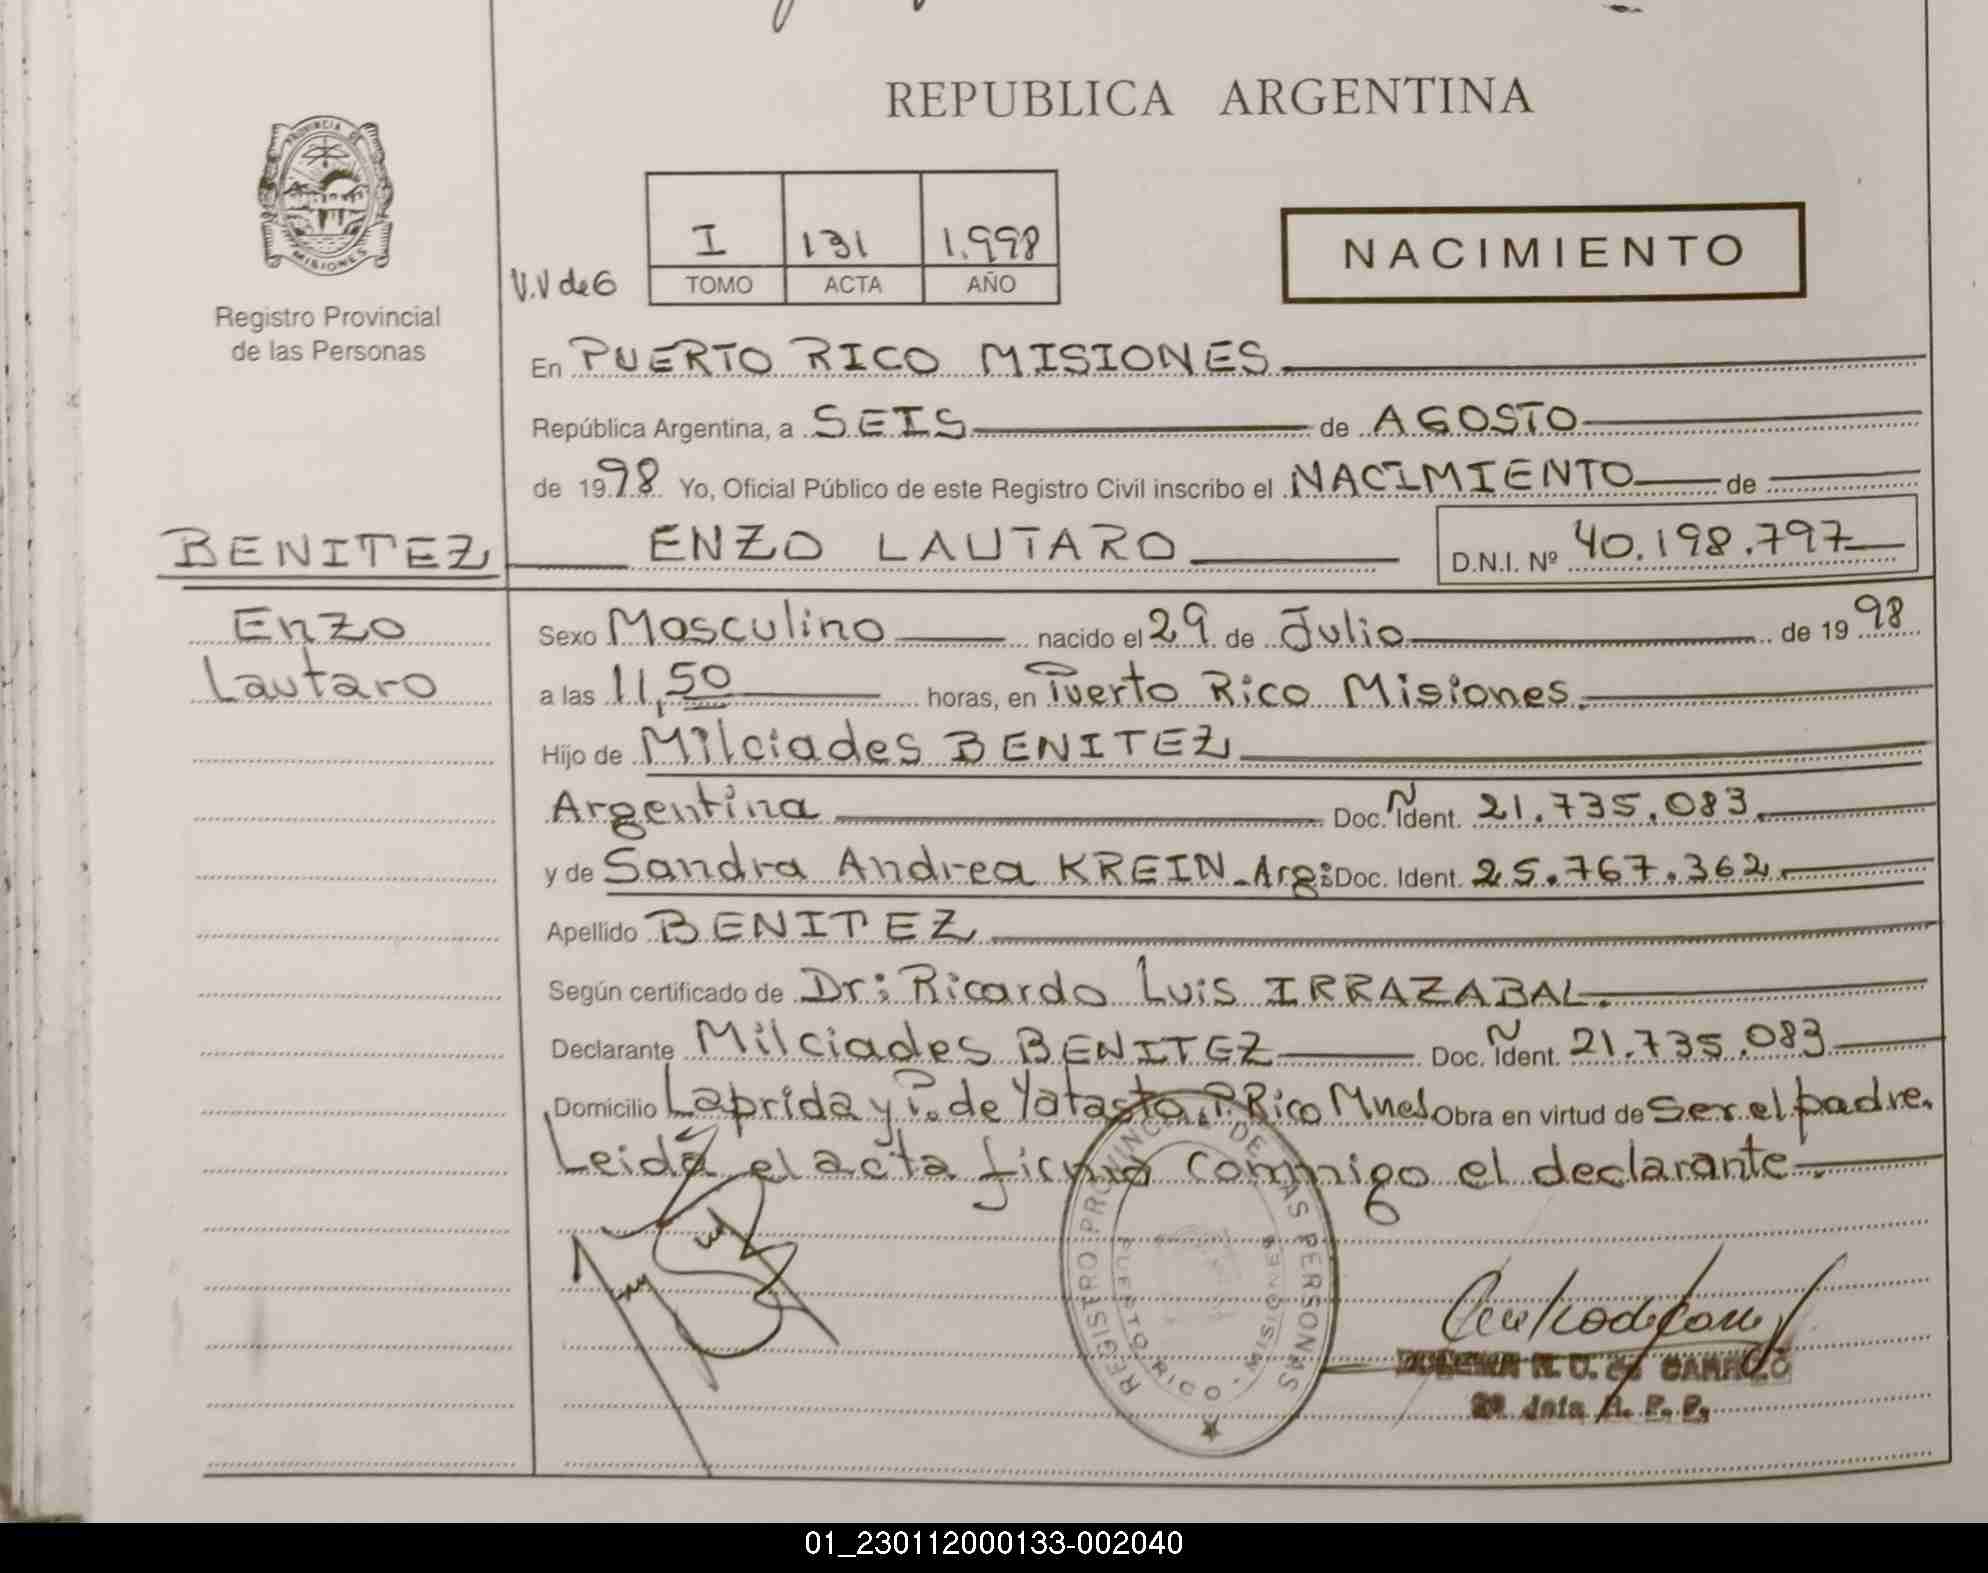 REPUBLICA ARGENTINA
PROVINCIA DE
MISIONES
Registro Provincial
de las Personas
V.V de 6
I 131 1.998
TOMO ACTA AÑO
NACIMIENTO
En PUERTO RICO MISIONES
República Argentina, a SEIS de AGOSTO
de 1998 Yo, Oficial Público de este Registro Civil inscribo el NACIMIENTO de
BENITEZ ENZO LAUTARO D.N.I. Nº 40.198.797
Enzo Sexo Masculino nacido el 29 de Julio de 19 98
Lautaro a las 11,50 horas, en Puerto Rico Misiones.
Hijo de Milciades BENITEZ
Argentina Doc. Ñ Ident. 21.735.083
y de Sandra Andrea KREIN - Arg: Doc. Ident. 25.767.362
Apellido BENITEZ
Según certificado de Dr: Ricardo Luis IRRAZABAL.
Declarante Milciades BENITEZ Doc. Ñ Ident. 21.735.083
Domicilio Laprida y P. de Yatasto. P. Rico Mnes Obra en virtud de Ser el padre.
Leida el acta firma conmigo el declarante.
REGISTRO PROVINCIAL DE LAS PERSONAS
PUERTO RICO - MISIONES
N. U. de CAMA
Jefa R. P. P.
01_230112000133-002040